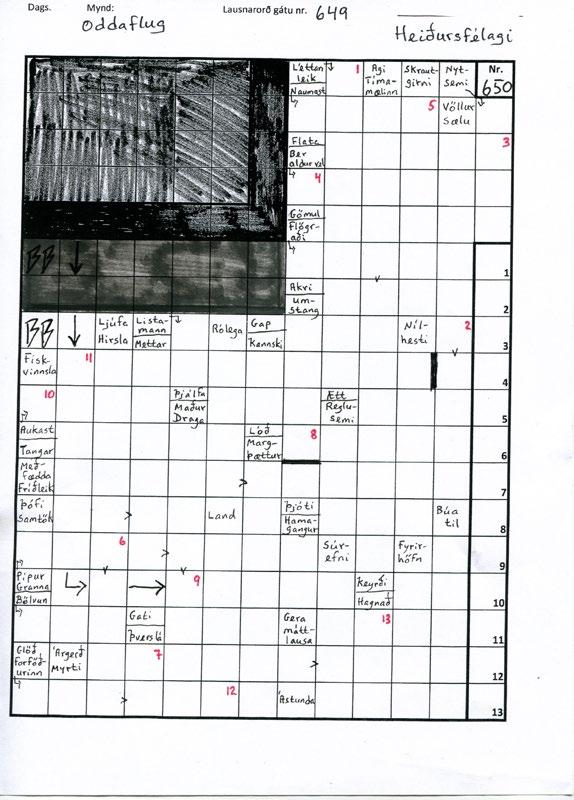 Dags. Mynd: Lausnarorð gátu nr. 649
Oddaflug
Heiðursfélagi
Léttan
leik
Naumast
1
Agi
Tíma-
mælinn
Skraut-
girni
Nyt-
semi
Nr.
650
5
Völlur
Sælu
Flata
Ber
aldur vel
3
4
Gömul
Flögr-
aði
BB
1
Akri
Um-
stang
2
BB
Ljúfa
Hirsla
Lista-
mann
Mettar
Rólega
Gap
Kannski
Níl-
hesti
2
3
Fisk-
vinnsla
11
4
10
Þjálfa
Maður
Draga
Ætt
Reglu-
semi
5
Aukast
Tangar
Lóð
Marg-
þættur
8
6
Með-
fædda
Fríðleik
7
Þófi
Samtök
Land
Þjóti
Hama-
gangur
Búa
til
8
6
Súr-
efni
Fyrir-
höfn
9
Pípur
Granna
Bölvun
9
Keyrði
Hagnað
10
Gati
Þverslá
Gera
mátt-
lausa
13
11
Glöð
Forföð-
urinn
Árgerð
Myrti
7
12
12
Ástunda
13